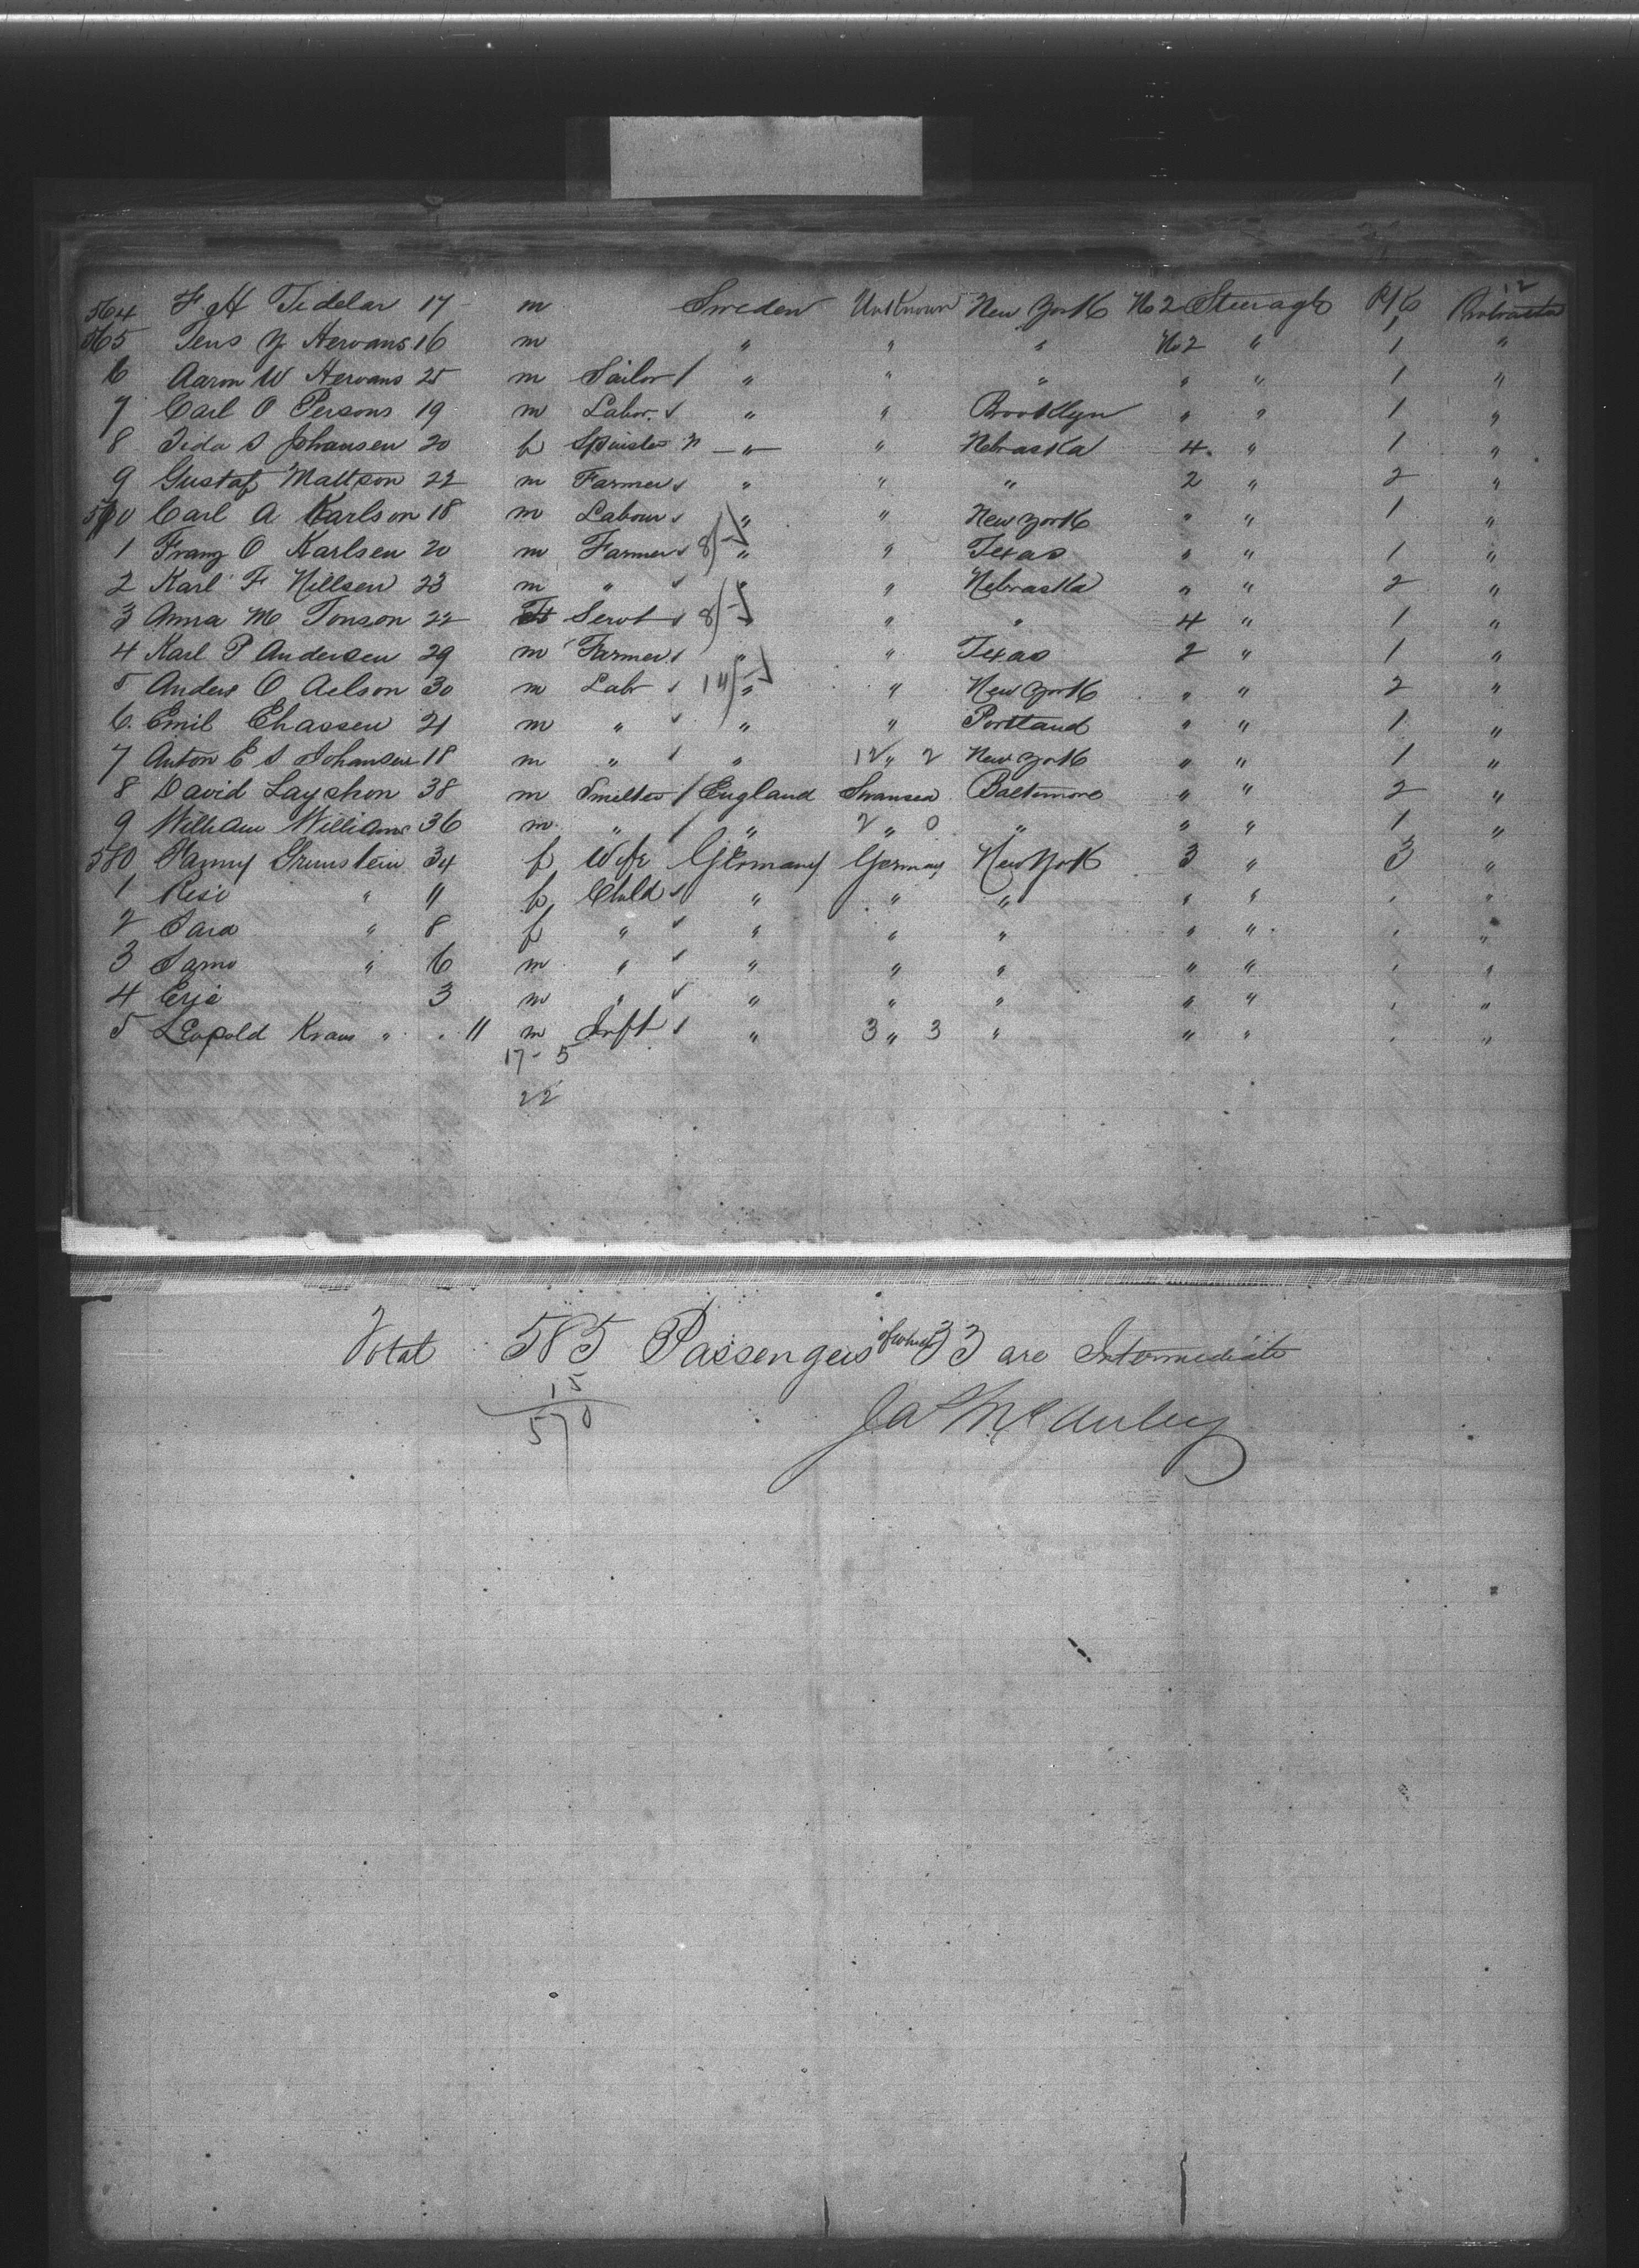 12
564 F. H Tidelar 17 m Sweden Unknown New York No 2 Steurage 1 Protracted
565 Jens Y Hervans 16 m " " " No 2 " 1 "
6 Aaron W Hervans 25 m Sailor " " " " " 1 "
7 Carl O Persons 19 m Labor. " " Brooklyn " " 1 "
8 Tida S Johansen 20 f Spinster n " " Nebraska 4. " 1 "
9 Gustaf Mattson 22 m Farmer " " " 2 " 2 "
570 Carl A Karlson 18 m Labour " " New York " " 1 "
1 Franz O Karlsen 20 m Farmer 8 " " Texas " " 1 "
2 Karl F Nillsen 23 m " " " Nebraska " " 2 "
3 Anna M Tonson 22 Servt 8 " " " 4 " 1 "
4 Karl P Andersen 29 m Farmer " " Texas 2 " 1 "
5 Anders O Aelson 30 m Labr 14 " " New York " " 2 "
6. Emil Ehassen 21 m " " " Portland " " 1 "
7 Anton E S Johansen 18 m " " 12 " 2 New York " " 1 "
8 David Layshon 38 m Smelter England Swansea Baltimore " " 2 "
9 William Williams 36 m " " 2 " 0 " " " 1 "
580 Fanny Grunstein 34 f Wife Germany Germany New York 3 " 3 "
1 Resi " 11 f Child " " " " " "
2 Sara " 8 f " " " " " " "
3 Samo " 6 m " " " " " " "
4 Eric 3 m " " " " " " "
5 Leopold Kraus " 11 m Inft " 3 " 3 " " " "
17 - 5
22
Total 585 Passengers of which 33 are Intermediate
15
570
Jas McAuley